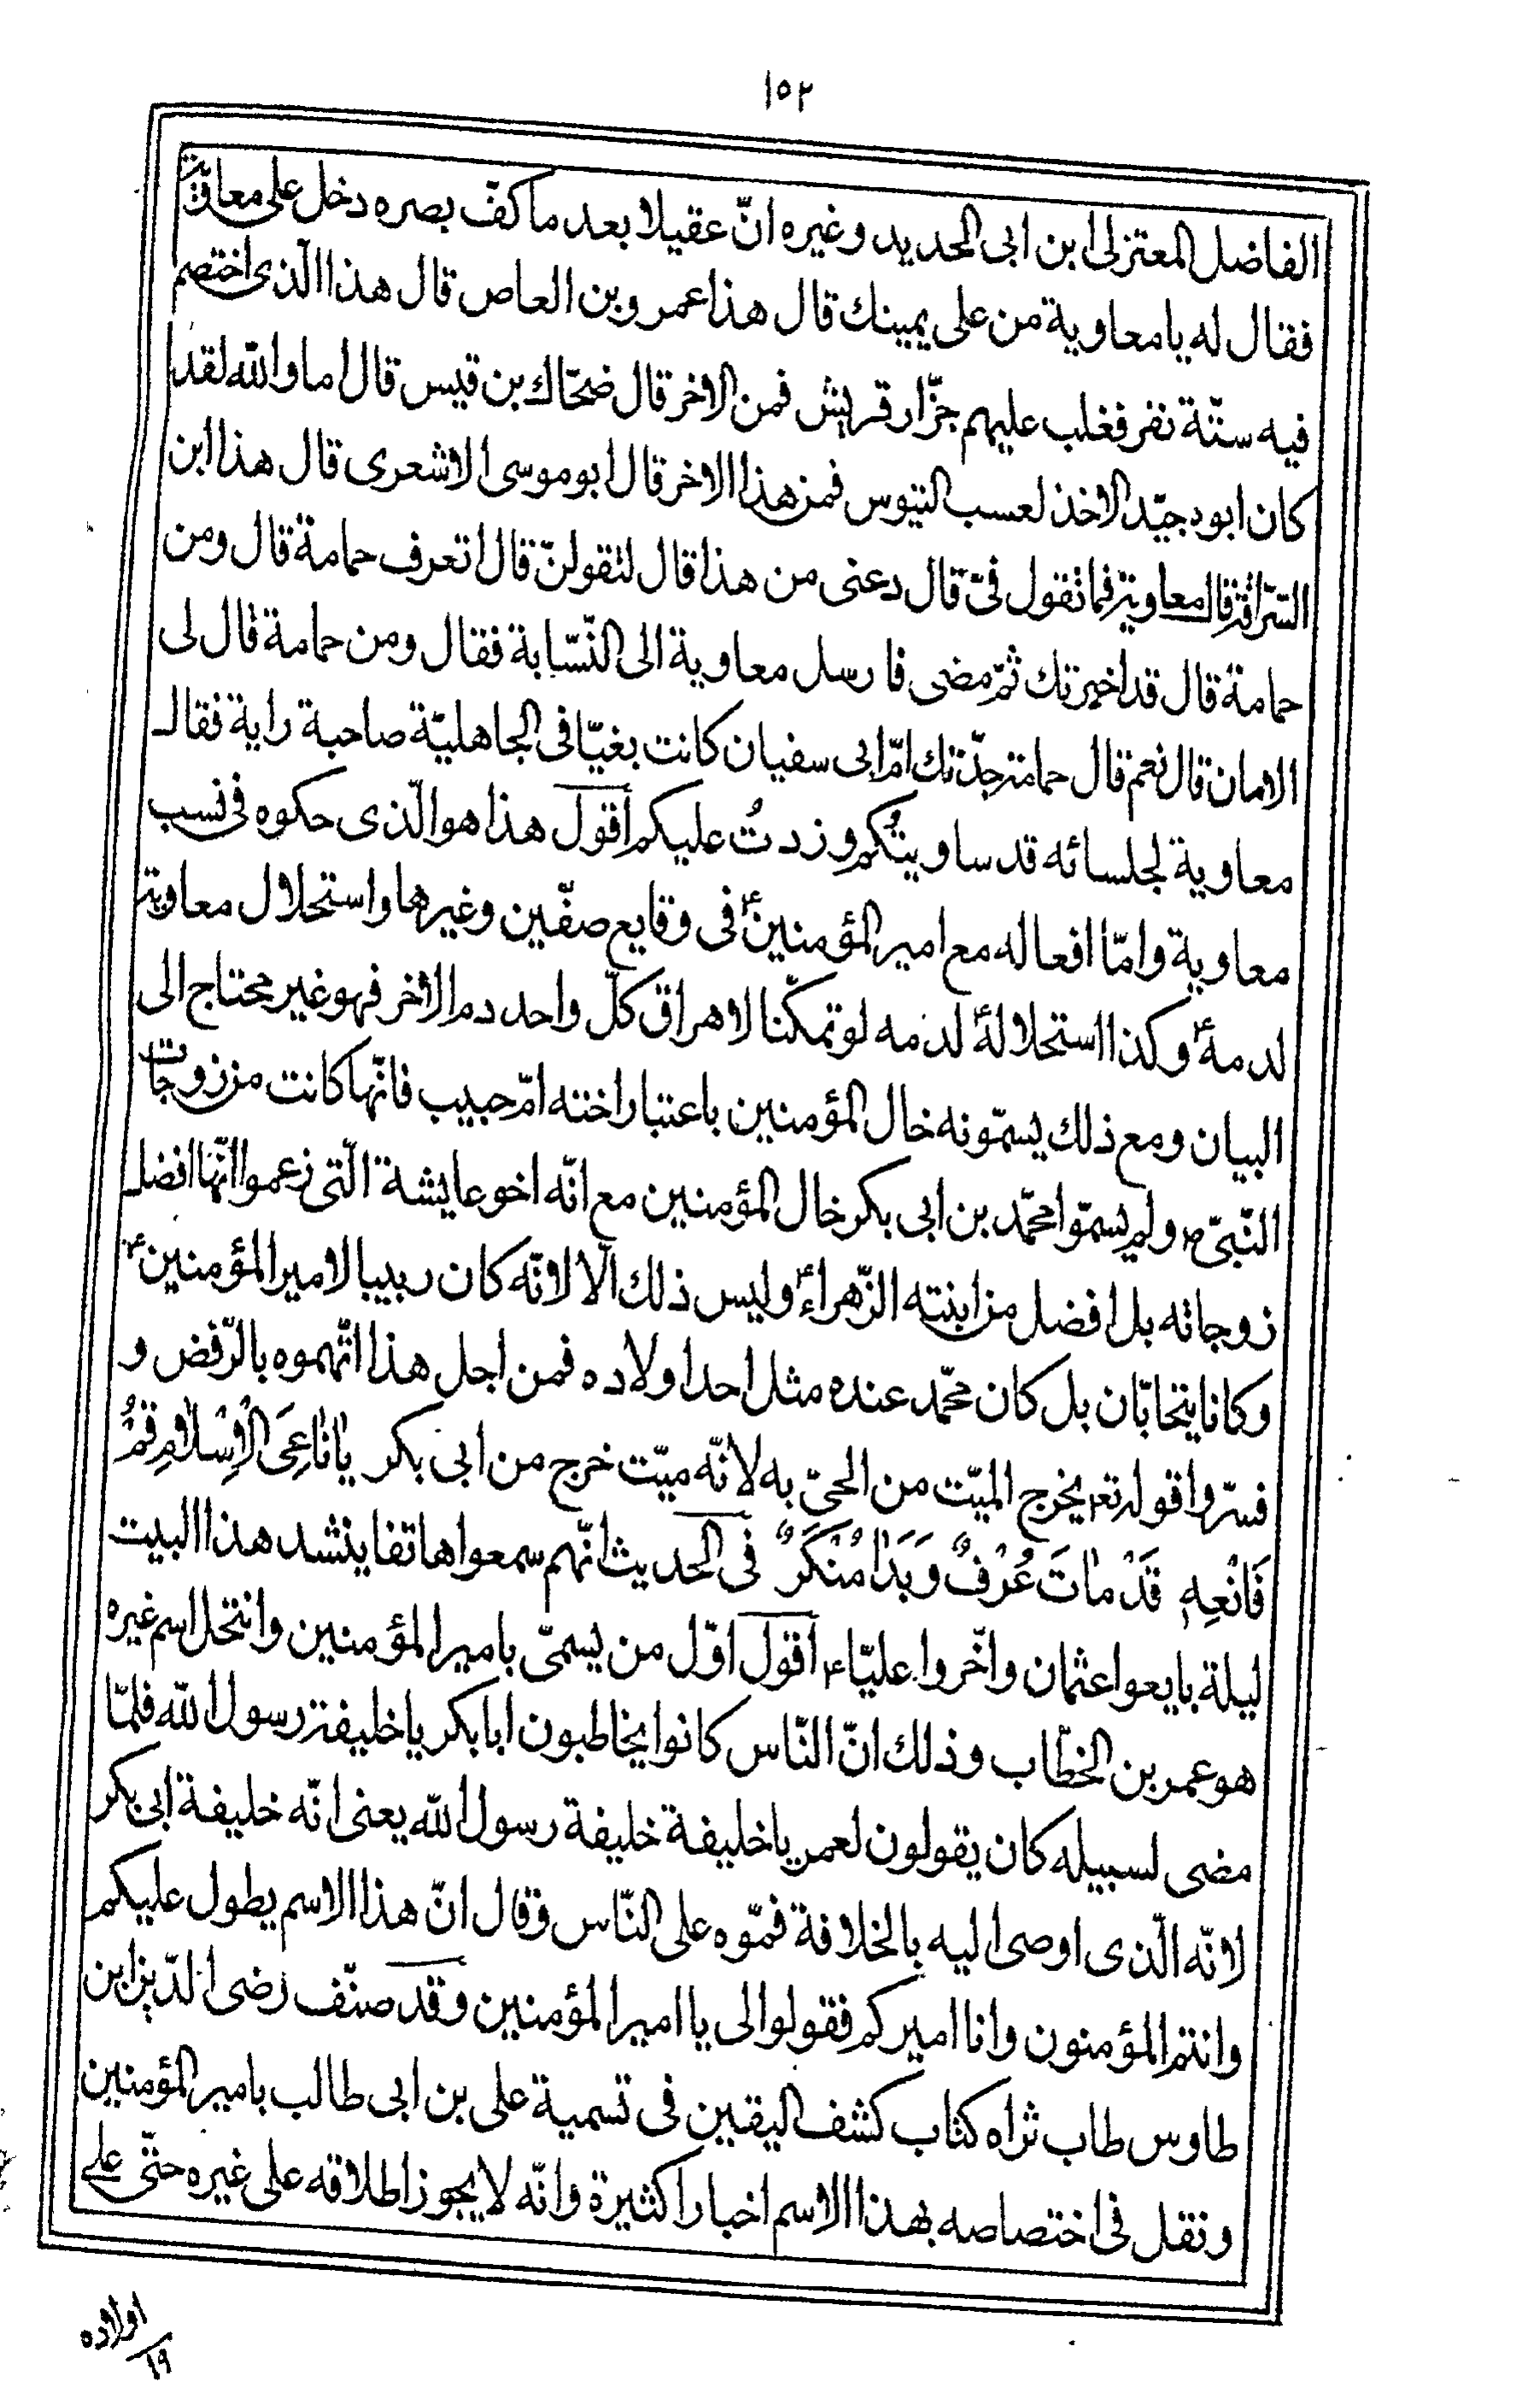 ١٥٢
الفاضل المعتزلى ابن ابى الحديد وغيره انّ عقيلا بعد ما كفّ بصره دخل على معاوية
فقال له يا معاوية من على يمينك قال هذا عمرو بن العاص قال هذا الّذى اختصم
فيه ستّة نفر فغلب عليهم جزّار قريش فمن الاخر قال ضحّاك بن قيس قال اما والله لقد
كان ابوه جيّد الاخذ لعسب التيوس فمن هذا الاخر قال ابو موسى الاشعرى قال هذا ابن
السّراقة قال معاوية فما تقول فىّ قال دعنى من هذا قال لتقولنّ قال اتعرف حمامة قال ومن
حمامة قال قد اخبرتك ثمّ مضى فارسل معاوية الى النّسّابة فقال ومن حمامة قال لى
الامان قال نعم قال حمامة جدّتك امّ ابى سفيان كانت بغيّا فى الجاهليّة صاحبة راية فقال
معاوية لجلسائه قد ساويتُكم وزدتُ عليكم اقول هذا هو الّذى حكوه فى نسب
معاوية وامّا افعاله مع امير المؤمنين ع فى وقايع صفّين وغيرها واستحلال معاوية
لدمه ع وكذا استحلاله ع لدمه لو تمكّنا لاهراق كلّ واحد دم الاخر فهو غير محتاج الى
البيان ومع ذلك يسمّونه خال المؤمنين باعتبار اخته امّ حبيب فانّها كانت من زوجات
النّبىّ ص ولم يسمّوا محمّد بن ابى بكر خال المؤمنين مع انّه اخو عايشة الّتى زعموا انّها افضل
زوجاته بل افضل من ابنته الزّهراء ع وليس ذلك الّا لانّه كان ربيبا لامير المؤمنين ع
وكانا يتحابّان بل كان محمّد عنده مثل احد اولاده فمن اجل هذا اتّهموه بالرّفض و
فسّروا قوله تع يخرج الميّت من الحىّ به لانّه ميّت خرج من ابى بكر يٰا نٰاعِىَ الْاِسْلٰامِ قُمْ
فَانْعِهِ قَدْ مٰاتَ عُرْفٌ وَبَدٰا مُنْكَرٌ فى الحديث انّهم سمعوا هاتفا ينشد هذا البيت
ليلة بايعوا عثمان واخّروا عليّا ع اقول اوّل من يسمّى بامير المؤمنين وانتحل اسم غيره
هو عمر بن الخطّاب وذلك انّ النّاس كانوا يخاطبون ابا بكر يا خليفة رسول الله فلمّا
مضى لسبيله كان يقولون لعمر يا خليفة خليفة رسول الله يعنى انّه خليفة ابى بكر
لانّه الّذى اوصى اليه بالخلافة فموّه على النّاس وقال انّ هذا الاسم يطول عليكم
وانتم المؤمنون وانا اميركم فقولوا لى يا امير المؤمنين وقد صنّف رضى الدّين ابن
طاوس طاب ثراه كتاب كشف اليقين فى تسمية على بن ابى طالب بامير المؤمنين
ونقل فى اختصاصه بهذا الاسم اخبارا كثيرة وانّه لا يجوز اطلاقه على غيره حتّى على
اولاده
١٩